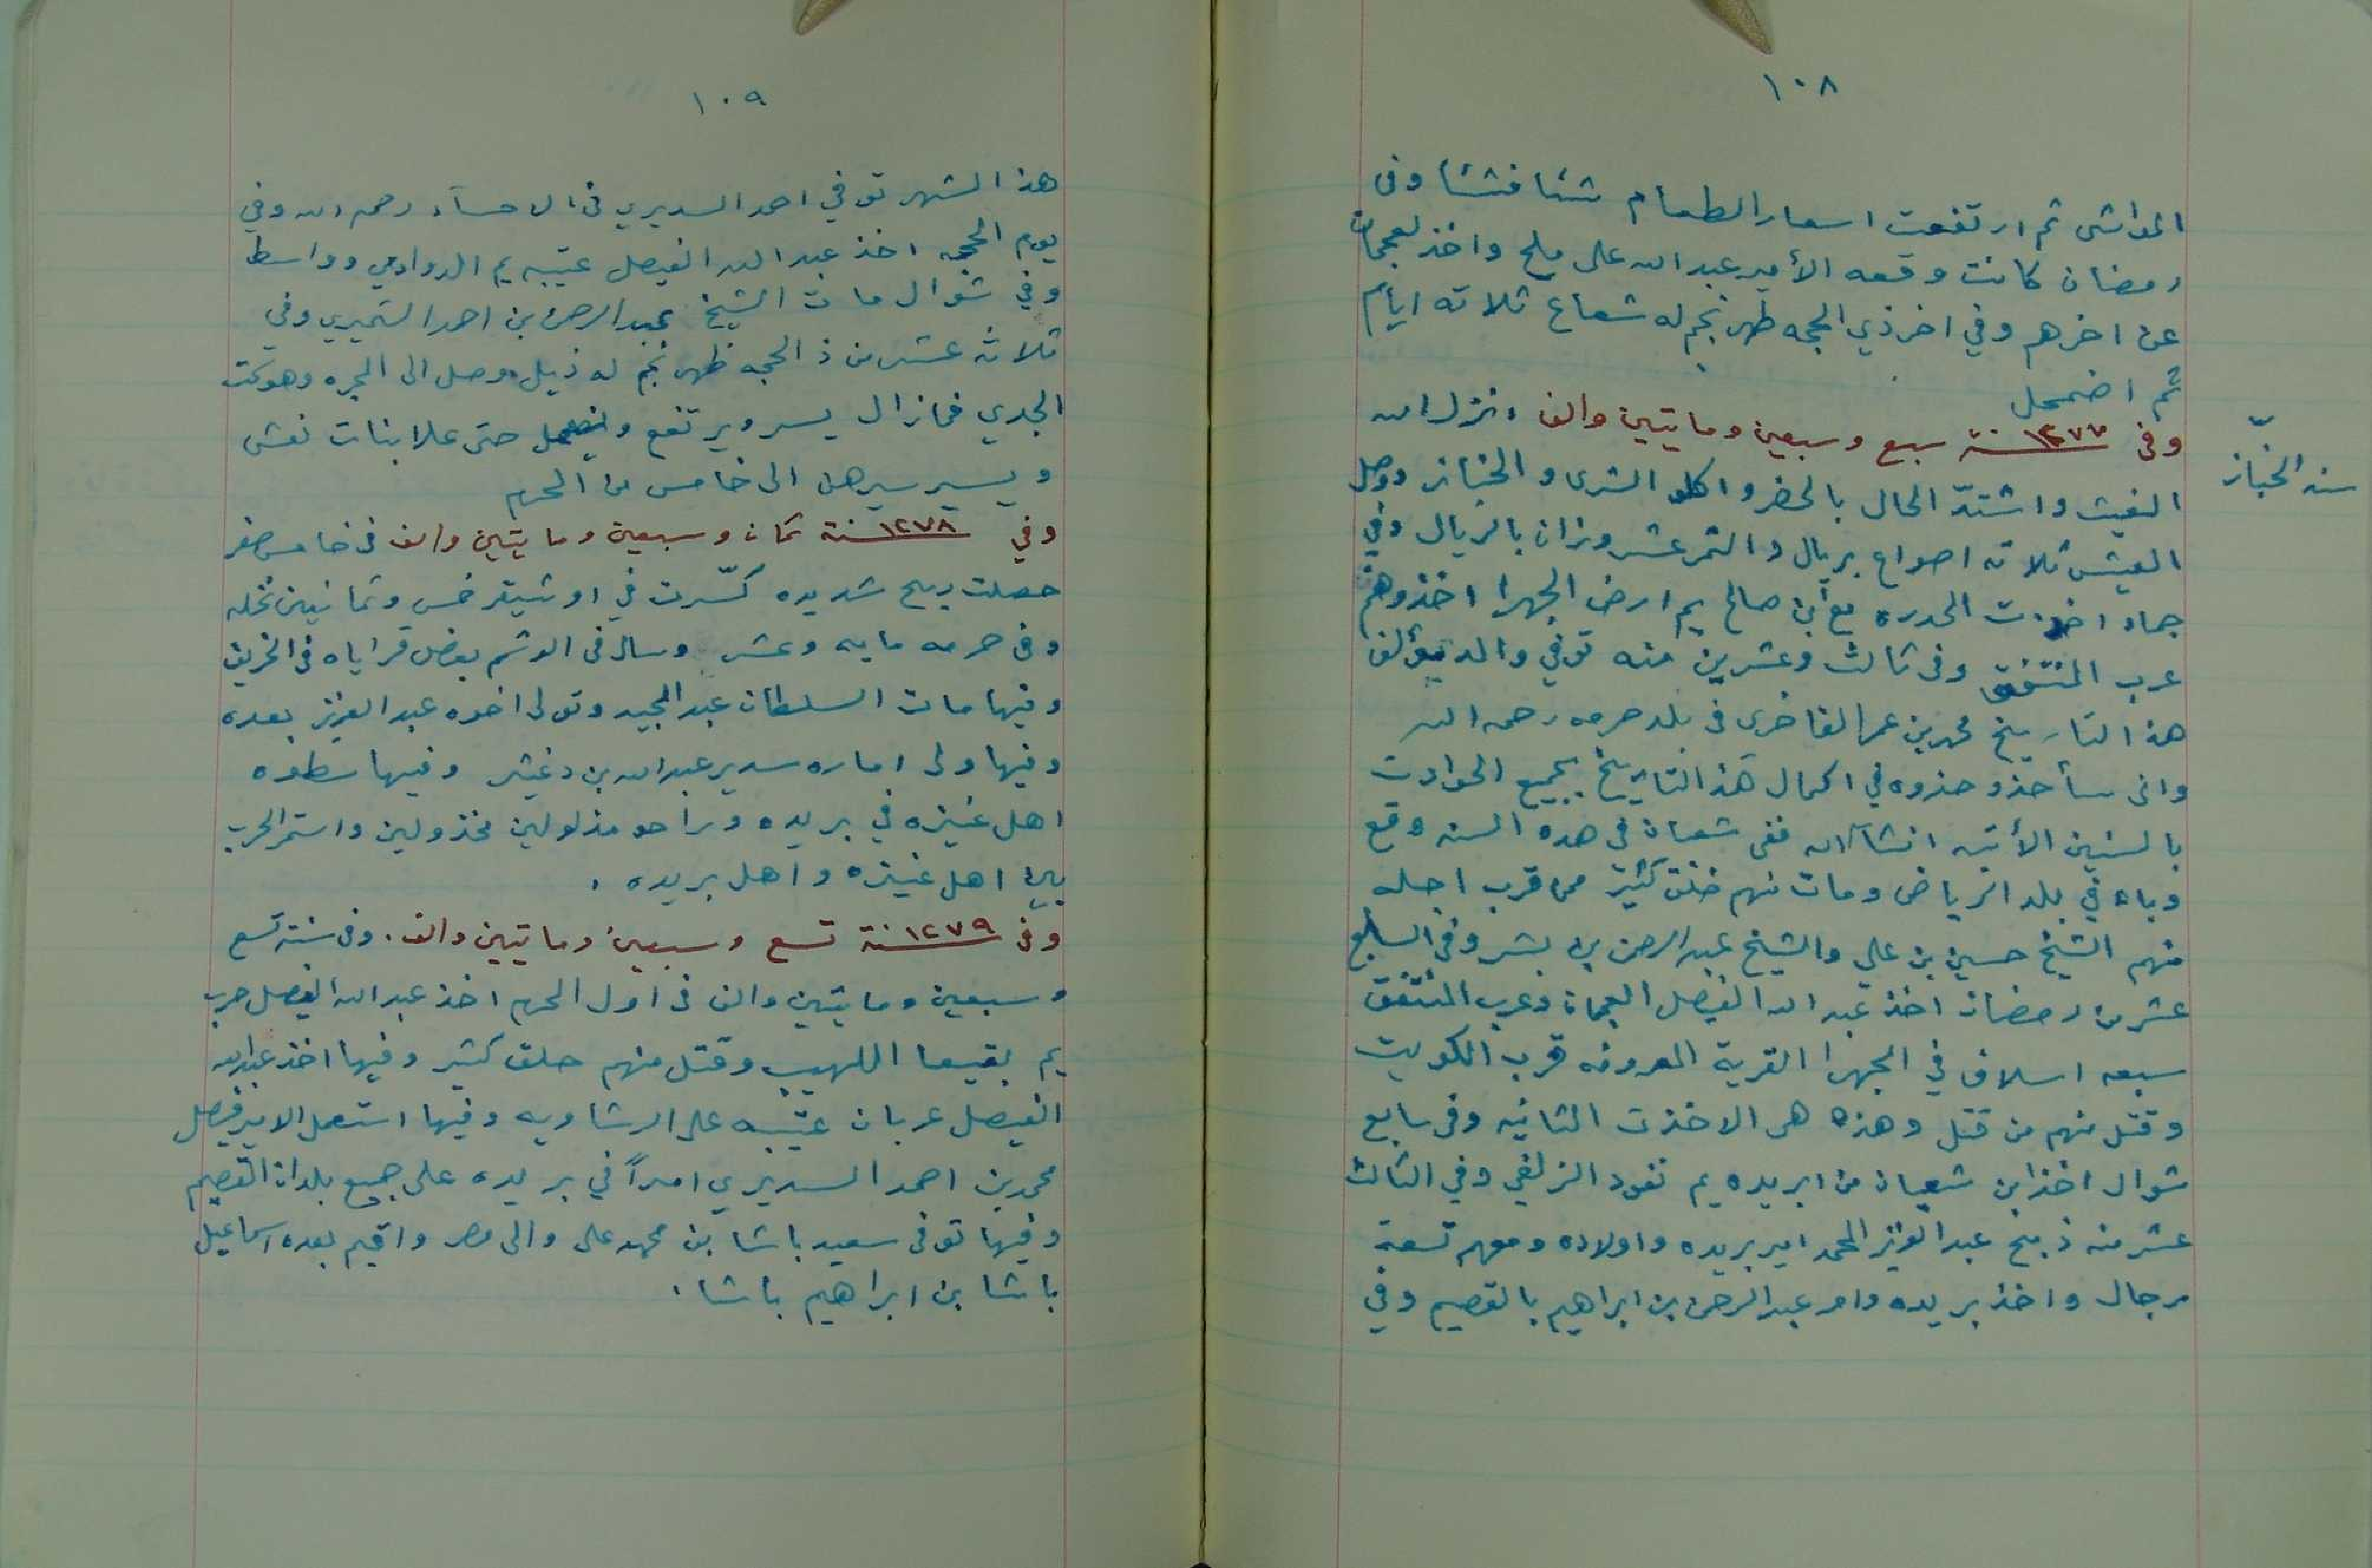 ١٠٨
المواشي ثم ارتفعت اسعار الطعام شئا فشئا وفى
رمضان كانت وقعه الأمير عبد الله على ملح واخذ لعجمان
عن اخرهم وفي اخر ذي الحجه ظهر نجم له شعاع ثلاثه ايام
ثم اضمحل
سنه الخبّاز
وفى ١٢٧٧ سنة سبع وسبعين وماىتين والف انزل الله
الغيث واشتدّ الحال بالحضر واكلو الشرى والخباز ووصل
العيش ثلاثه اصواع بريال والتمر عشر وزان بالريال وفي
جماد اخذت الحدره مع أبن صالح يم ارض الجهرا اخذوهم
عرب المنتفق وفى ثالث وعشرين منه توفي والد مؤلف
هذا التاريخ محمد بن عمر الفاخرى فى بلد حرمه رحمه الله
وانى سأحذو حذوه في اكمال هذا التاريخ بجميع الحوادث
بالسنين الأتيه انشآالله ففى شعبان فى هذه السنه وقع
وباء في بلد الرياض ومات منهم خلق كثير ممن قرب اجله
منهم الشيخ حسين بن علي والشيخ عبدالرحمن بن بشر وفى السابع
عشر من رمضان اخذ عبدالله الفيصل العجمان وعرب المنتفق
سبعه اسلاف في الجهرا القرية المعروفه قرب الكويت
وقتل منهم من قتل وهذه هى الاخذت الثانيه وفى سابع
شوال اخذ ابن شعبان من ابريده يم نفود الزلفي وفي الثالث
عشر منه ذبح عبدالعزيز المحمد امير بريده واولاده ومعهم تسعة
رجال واخذ بريده وامر عبدالرحمن بن ابراهيم بالقصيم وفي
١٠٩
هذا الشهر توفي احمد السديري فى الاحسآء رحمه الله وفي
يوم الحجه اخذ عبدالله الفيصل عتيبه يم الدوادمي وواسط
وفي شوال مات الشيخ عبدالرحمن بن احمد الثميري وفي
ثلاثه عشر من ذ الحجه ظهر نجم له ذيل وصل الى المجره وهو تحت
الجدي فمازال يسر ويرتفع ويضمحل حتى علا بنات نعش
ويسير سيرهن الى خامس من المحرم
وفي ١٢٧٨ سنة ثمان وسبعين ومايتين والف فى خامس صفر
حصلت ريح شديده كسّرت في اوشيقر خمس وثمانين نخله
وفى حرمه مايه وعشر وسال فى الوشم بعض قراياه فى الخريف
وفيها مات السلطان عبدالمجيد وتولى اخوه عبدالعزيز بعده
وفيها ولى اماره سدير عبدالله بن دغيثر وفيها سطوه
اهل عنيزه في بريده وراحو مذلولين مخذولين واستمر الحرب
بين اهل عنيزه واهل بريده .
وفى ١٢٧٩ سنة تسع وسبعين وماتيين والف . وفى سنة تسع
وسبعين ومايتين والف فى اول المحرم اخذ عبدالله الفيصل حرب
يم بقيعا اللهيب وقتل منهم خلق كثير وفيها اخذ عبدالله
الفيصل عربان عتيبه على الرشاويه وفيها استعمل الامير فيصل
محمد بن احمد السديري امراً في بريده على جميع بلدان القصيم
وفيها توفى سعيد باشا بن محمد على والى مصر واقيم بعده اسماعيل
باشا بن ابراهيم باشا .